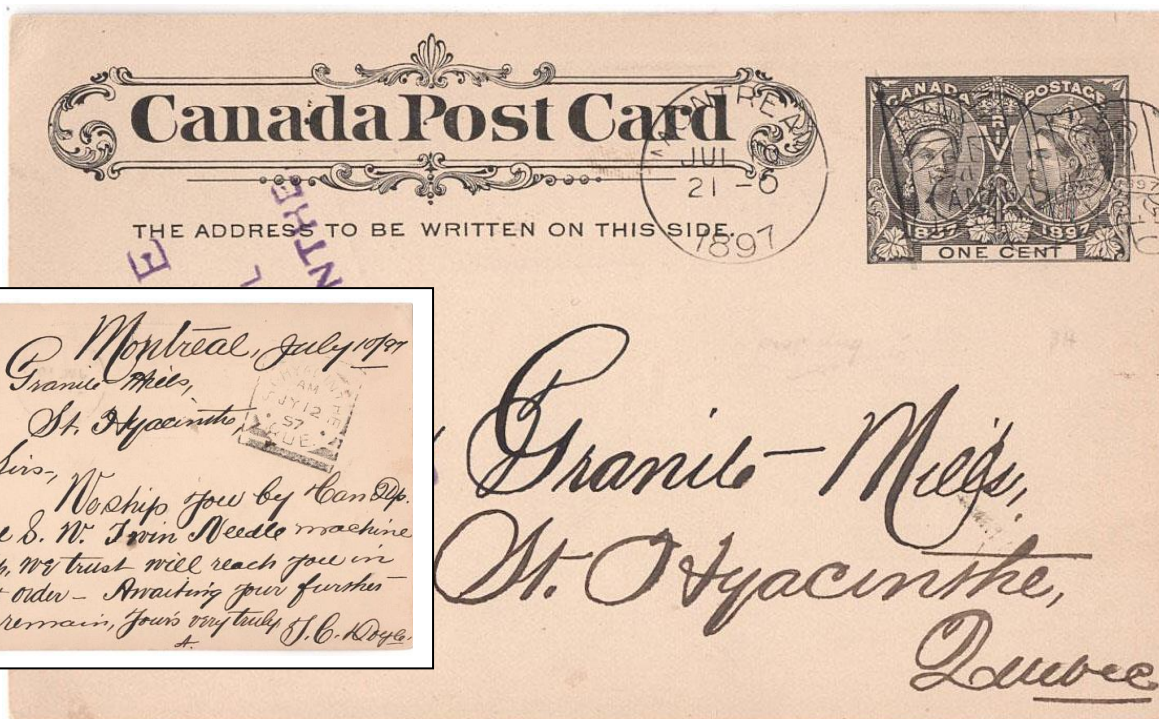 Canada Post Card
THE ADDRESS TO BE WRITTEN ON THIS SIDE.
MONTREAL
JUL
21-0
1897
CANADA POSTAGE
1837 1897
ONE CENT
E
L
NTRE
Granite Mills,
St. Hyacinthe,
Quebec
Montreal, July 10/97
Granite Mills,
St. Hyacinthe,
Sirs,
We ship you by Can Exp.
S. W. Twin Needle machine
we trust will reach you in
order - Awaiting your further
remain, Yours very truly, J. C. Doyle.
ST HYACINTHE
AM
JY 12
97
QUE